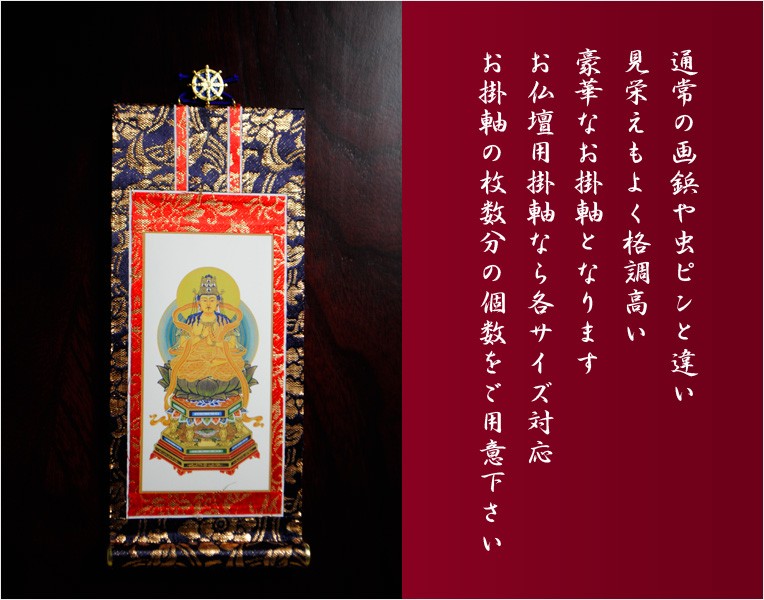 通常の画鋲や虫ピンと違い
見栄えもよく格調高い
豪華なお掛軸となります
お仏壇用掛軸なら各サイズ対応
お掛軸の枚数分の個数をご用意下さい